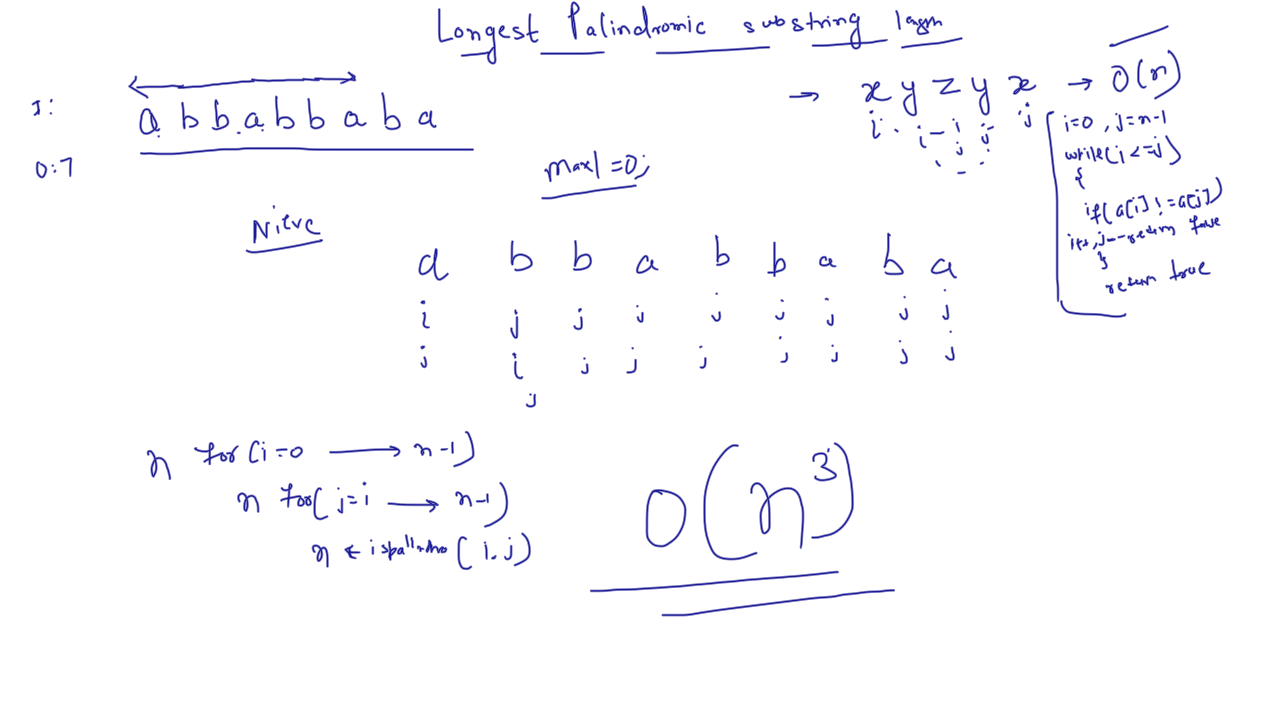 Longest Palindromic substring
I: a b b a b b a b a
O:7
→ x y z y x → O(n)
i j i i j j
i=0, j=n-1
while(i<=j)
{
if(a[i]!=a[j])
i++, j-- return false
}
return true
maxl=0;
a b b a b b a b a
i j j j j j j j j
j i j j j j j j j
j
n for(i=0 → n-1)
n for(j=i → n-1)
n ← (i,j)
O(n³)